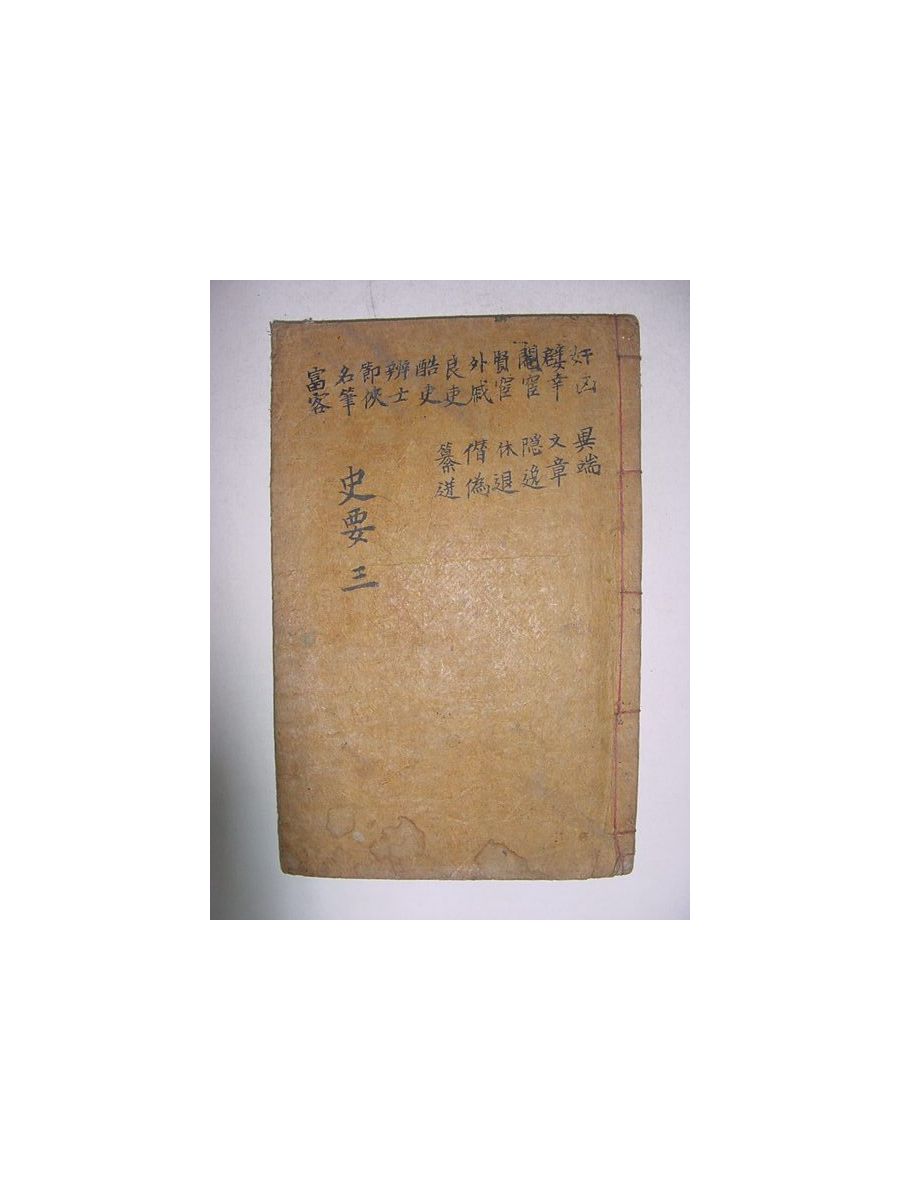 奸凶
嬖幸
閹宦
賢宦
外戚
良吏
酷吏
辨士
節俠
名筆
富客
異端
文章
隱逸
休退
僭偽
篡逆
史要 三